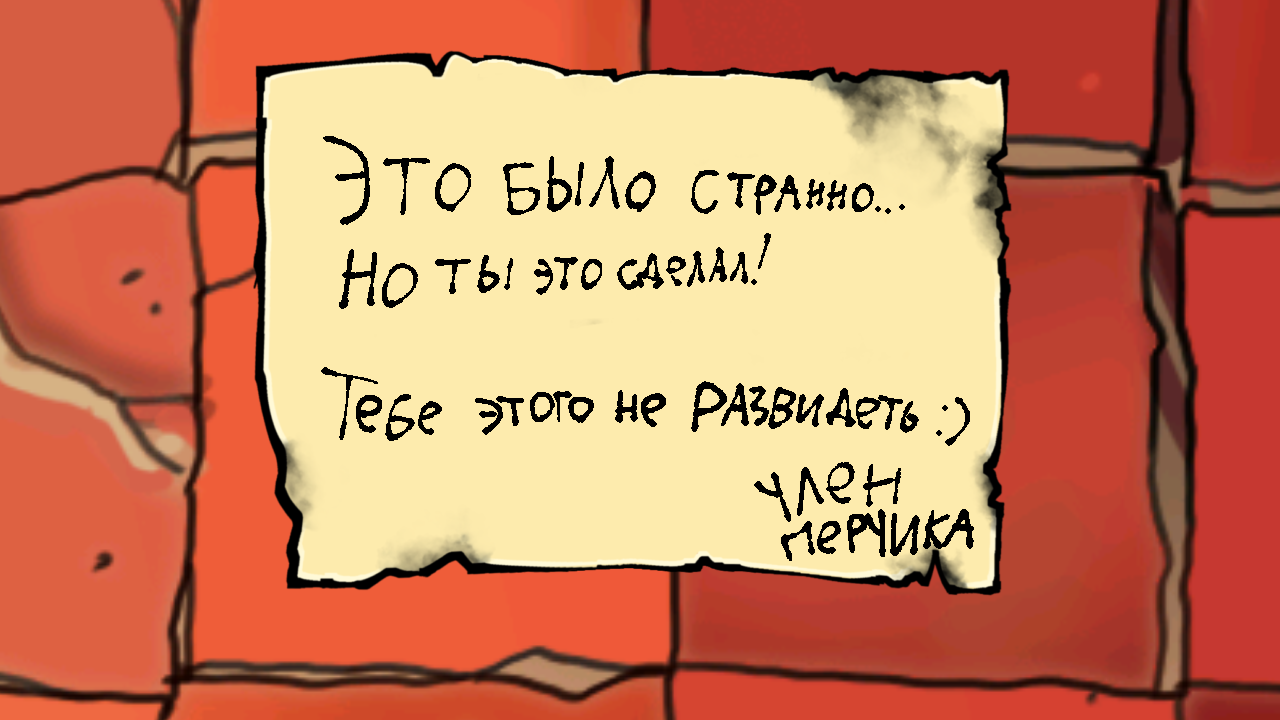 Это было странно...
Но ты это сделал!
Тебе этого не развидеть :)
член
мерчика